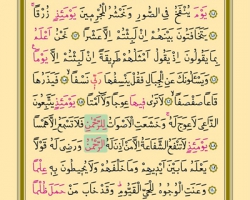 يَوْمَ يُنْفَخُ فِي الصُّورِ وَنَحْشُرُ الْمُجْرِمِينَ يَوْمَئِذٍ زُرْقًا
يَتَخَافَتُونَ بَيْنَهُمْ إِنْ لَبِثْتُمْ إِلَّا عَشْرًا نَحْنُ أَعْلَمُ
بِمَا يَقُولُونَ إِذْ يَقُولُ أَمْثَلُهُمْ طَرِيقَةً إِنْ لَبِثْتُمْ إِلَّا يَوْمًا
وَيَسْأَلُونَكَ عَنِ الْجِبَالِ فَقُلْ يَنْسِفُهَا رَبِّي نَسْفًا فَيَذَرُهَا
قَاعًا صَفْصَفًا لَا تَرَى فِيهَا عِوَجًا وَلَا أَمْتًا يَوْمَئِذٍ يَتَّبِعُونَ
الدَّاعِيَ لَا عِوَجَ لَهُ وَخَشَعَتِ الْأَصْوَاتُ لِلرَّحْمَنِ فَلَا تَسْمَعُ إِلَّا هَمْسًا
يَوْمَئِذٍ لَا تَنْفَعُ الشَّفَاعَةُ إِلَّا مَنْ أَذِنَ لَهُ الرَّحْمَنُ وَرَضِيَ لَهُ قَوْلًا
يَعْلَمُ مَا بَيْنَ أَيْدِيهِمْ وَمَا خَلْفَهُمْ وَلَا يُحِيطُونَ بِهِ عِلْمًا
وَعَنَتِ الْوُجُوهُ لِلْحَيِّ الْقَيُّومِ وَقَدْ خَابَ مَنْ حَمَلَ ظُلْمًا